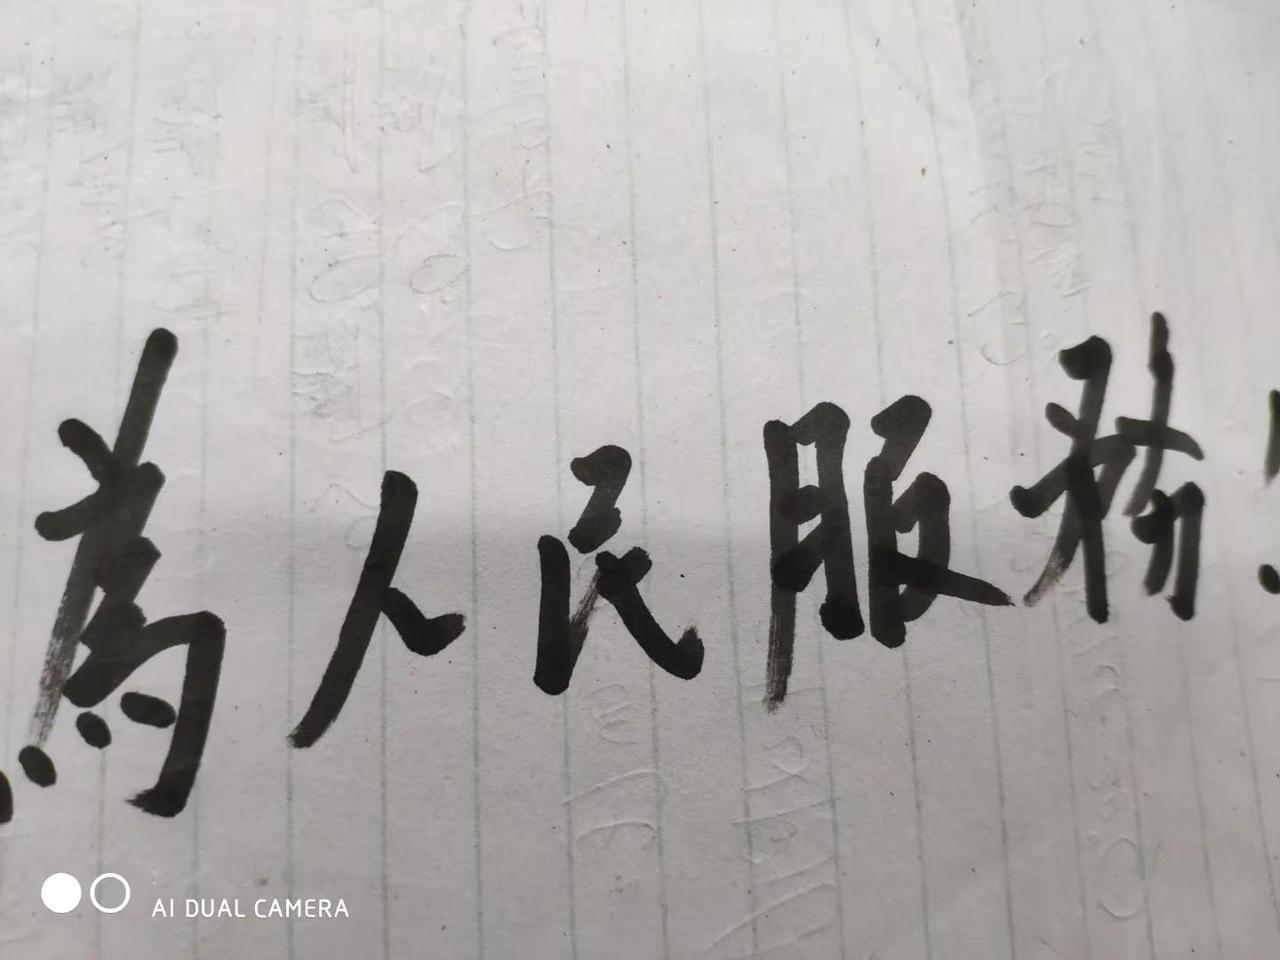 為人民服務!
AI DUAL CAMERA